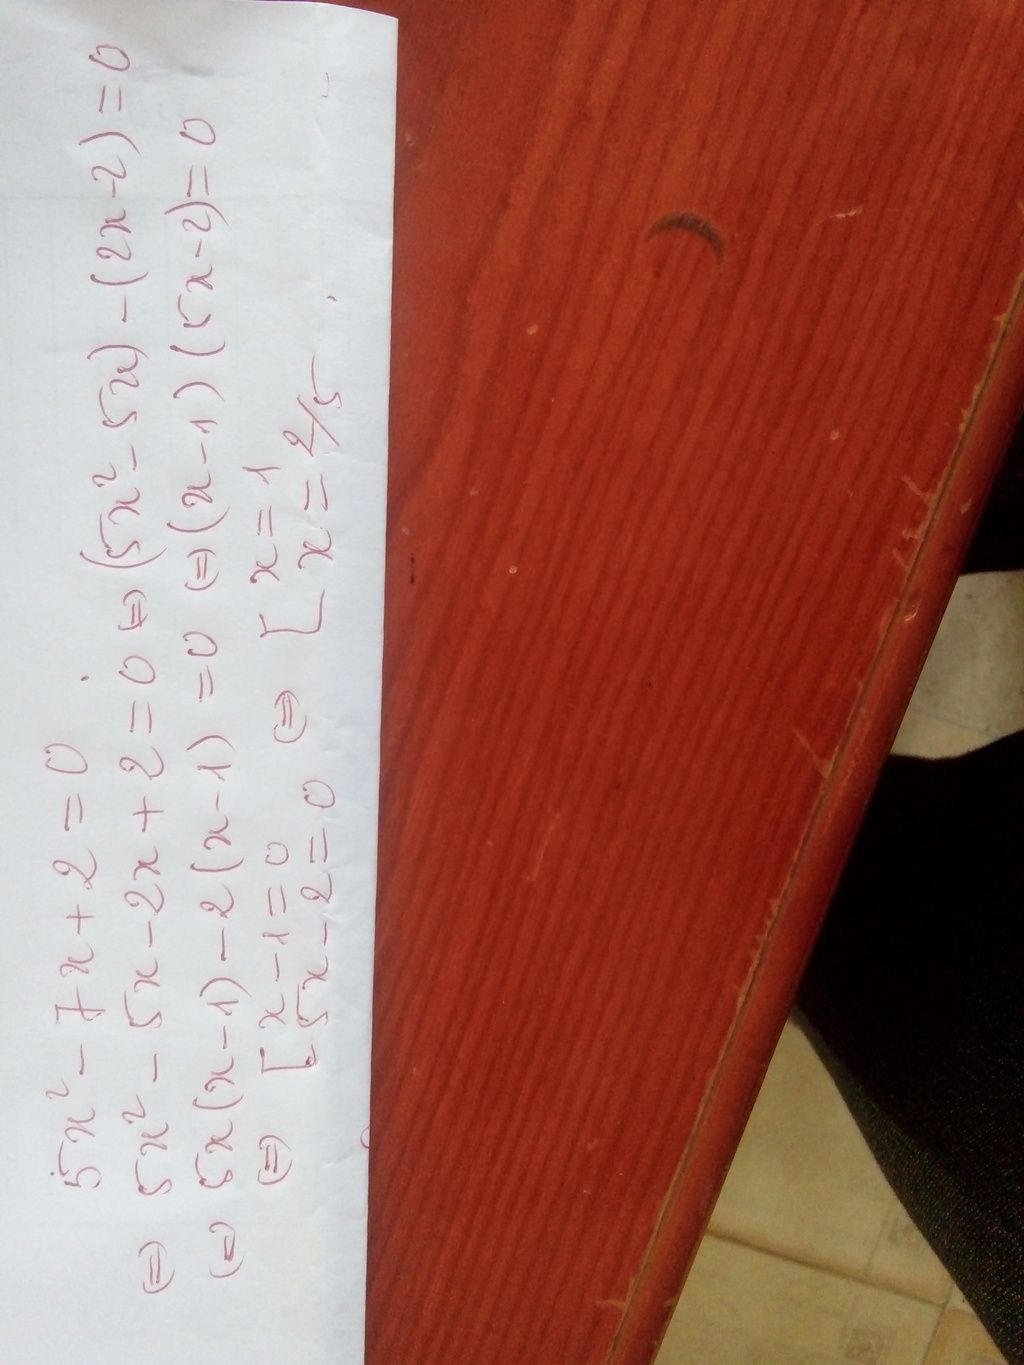 5x² - 7x + 2 = 0
⇔ 5x² - 5x - 2x + 2 = 0 ⇔ (5x² - 5x) - (2x - 2) = 0
⇔ 5x(x - 1) - 2(x - 1) = 0 ⇔ (x - 1)(5x - 2) = 0
⇔ [ x - 1 = 0 ⇔ [ x = 1
5x - 2 = 0 x = 2/5